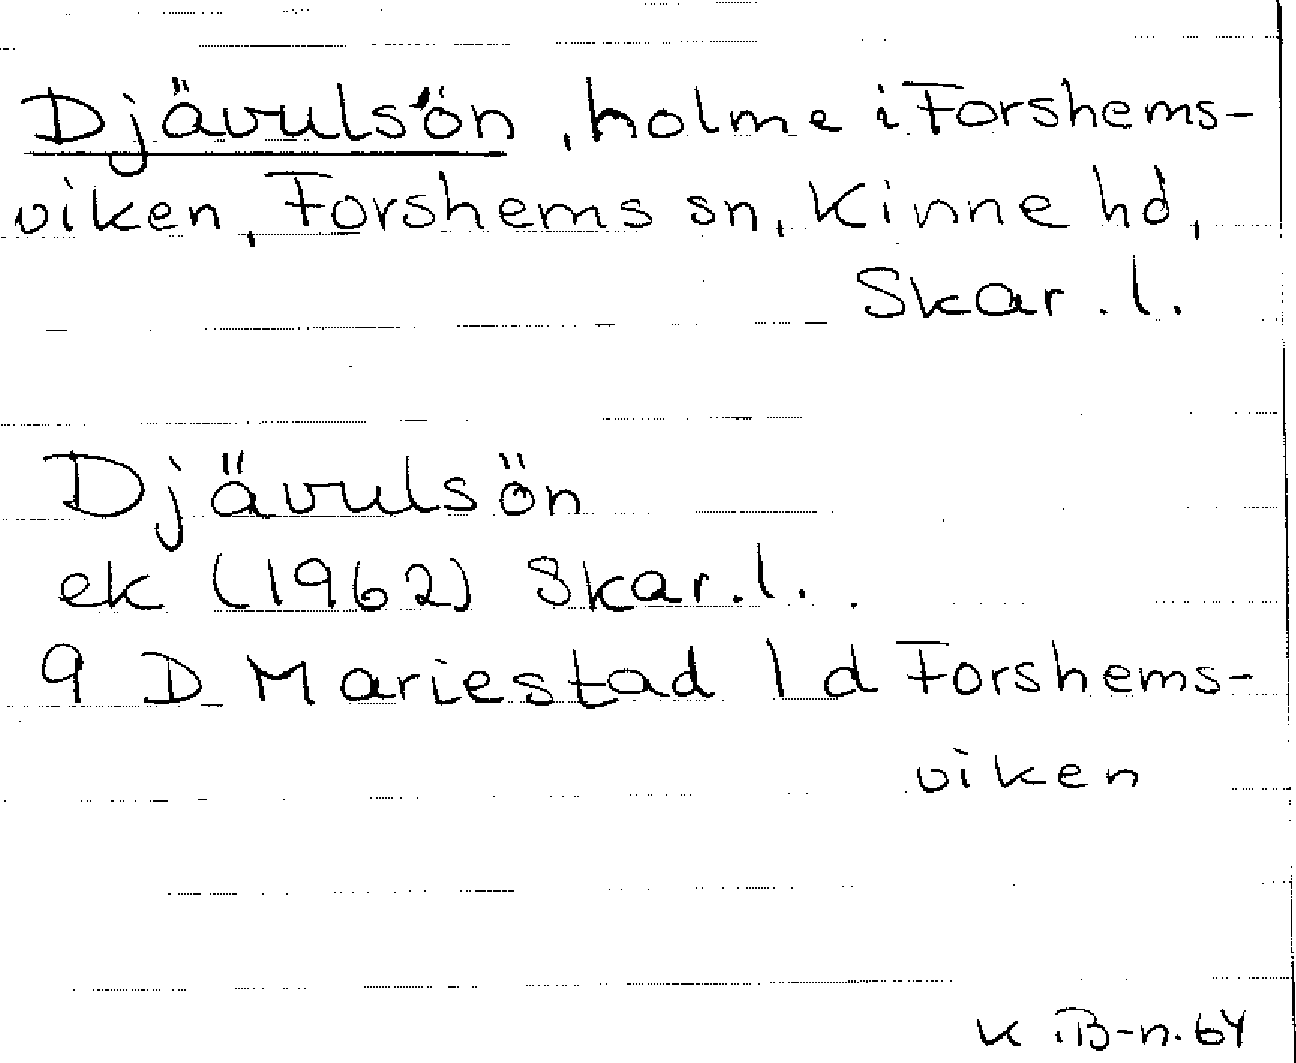 Djävulsön, holme i Forshems-
viken, Forshems sn, Kinne hd,
Skar. l.
Djävulsön
ek (1962) Skar. l.
9 D Mariestad 1d Forshems-
viken
K iB-n. 64